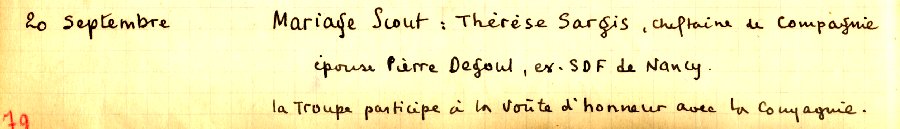 20 Septembre Mariage Scout : Thérèse Sargis, cheftaine de Compagnie
épouse Pierre Degoul, ex. SDF de Nancy.
la Troupe participe à la voûte d'honneur avec la Compagnie.
79